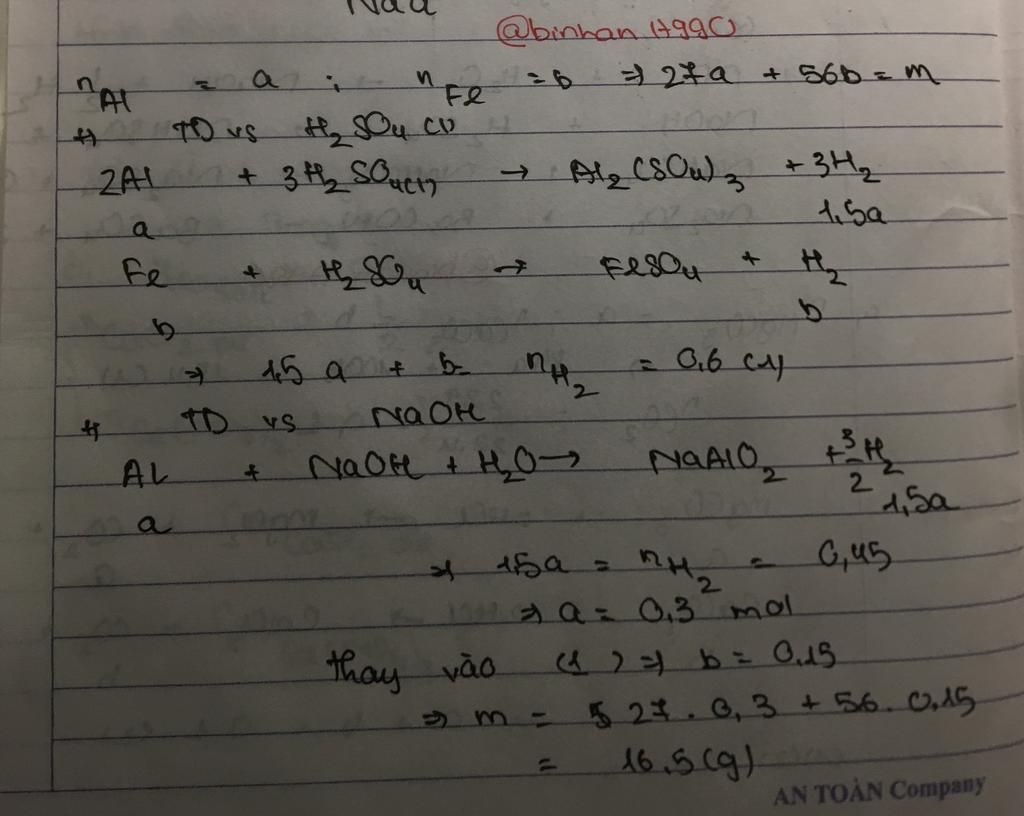 @binhan1799()
nAl = a ; nFe = b => 27a + 56b = m
+) TD vs H2SO4 (l)
2Al + 3H2SO4(l) → Al2(SO4)3 + 3H2
a 1,5a
Fe + H2SO4 → FeSO4 + H2
b b
=> 1,5 a + b = nH2 = 0,6 (1)
+) TD vs NaOH
Al + NaOH + H2O → NaAlO2 + 3/2 H2
a 1,5a
=> 1,5a = nH2 = 0,45
=> a = 0,3 mol
thay vào (1) => b = 0,15
=> m = 27 . 0,3 + 56 . 0,15
= 16,5 (g)
AN TOÀN Company